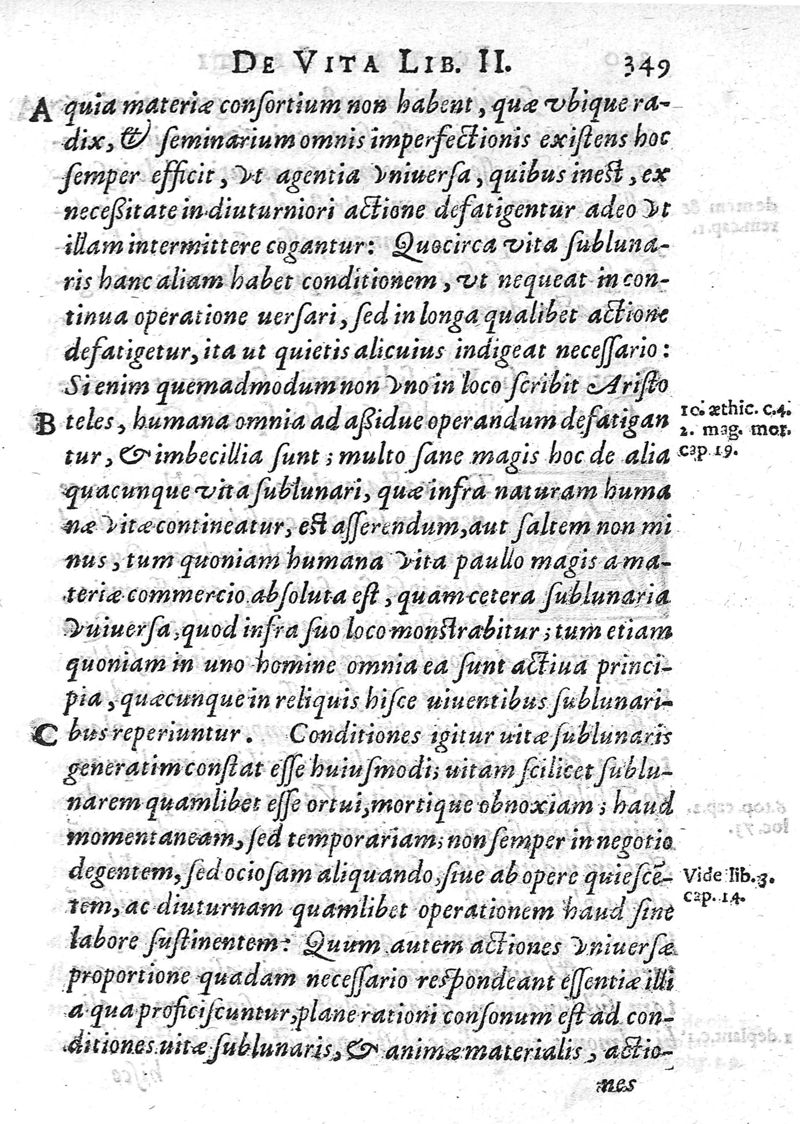 DE VITA LIB. II. 349
A quia materiæ conſortium non habent, quæ vbique ra-
dix, & ſeminarium omnis imperfectionis exiſtens hoc
ſemper efficit, vt agentia vniuerſa, quibus ineſt, ex
neceßitate in diuturniori actione defatigentur adeo vt
illam intermittere cogantur: Quocirca vita ſubluna-
ris hanc aliam habet conditionem, vt nequeat in con-
tinua operatione uerſari, ſed in longa qualibet actione
defatigetur, ita ut quietis alicuius indigeat neceſſario:
Si enim quemadmodum non vno in loco ſcribit Ariſto
B teles, humana omnia ad aßidue operandum defatigan
tur, & imbecillia ſunt; multo ſane magis hoc de alia
quacunque vita ſublunari, quæ infra naturam huma
næ vitæ contineatur, eſt aſſerendum, aut ſaltem non mi
nus, tum quoniam humana vita paullo magis a ma-
teriæ commercio abſoluta eſt, quam cetera ſublunaria
vniuerſa, quod infra ſuo loco monſtrabitur; tum etiam
quoniam in uno homine omnia ea ſunt actiua princi-
pia, quæcunque in reliquis hiſce uiuentibus ſublunari-
C bus reperiuntur. Conditiones igitur uitæ ſublunaris
generatim conſtat eſſe huiuſmodi; uitam ſcilicet ſublu-
narem quamlibet eſſe ortui, mortique obnoxiam; haud
momentaneam, ſed temporariam; non ſemper in negotio
degentem, ſed ocioſam aliquando, ſiue ab opere quieſcẽ-
tem, ac diuturnam quamlibet operationem haud ſine
labore ſuſtinentem: Quum autem actiones vniuerſæ
proportione quadam neceſſario reſpondeant eſſentiæ illi
a qua proficiſcuntur, plane rationi conſonum eſt ad con-
ditiones uitæ ſublunaris, & animæ materialis, actio-
nes
10. æthic. c.4.
2. mag. mor.
cap 19.
Vide lib. 3.
cap. 14.